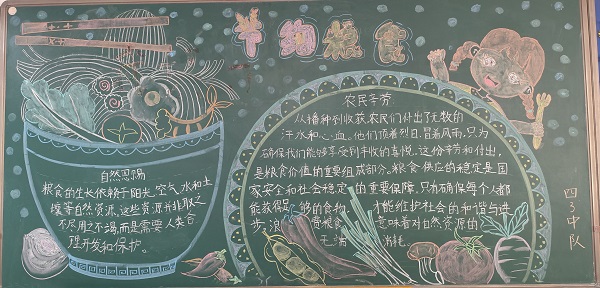 节约粮食
自然恩赐
粮食的生长依赖于阳光、空气、水和土
壤等自然资源,这些资源并非取之
不尽用之不竭,而是需要人类合
理开发和保护。
农民辛劳
从播种到收获,农民们付出了无数的
汗水和心血。他们顶着烈日,冒着风雨,只为
确保我们能够享受到丰收的喜悦。这份辛劳和付出,
是粮食价值的重要组成部分。粮食供应的稳定是国
家安全和社会稳定的重要保障。只有确保每个人都
能获得足够的食物,才能维护社会的和谐与进
步。浪费粮食,意味着对自然资源的
无端消耗。
四3中队